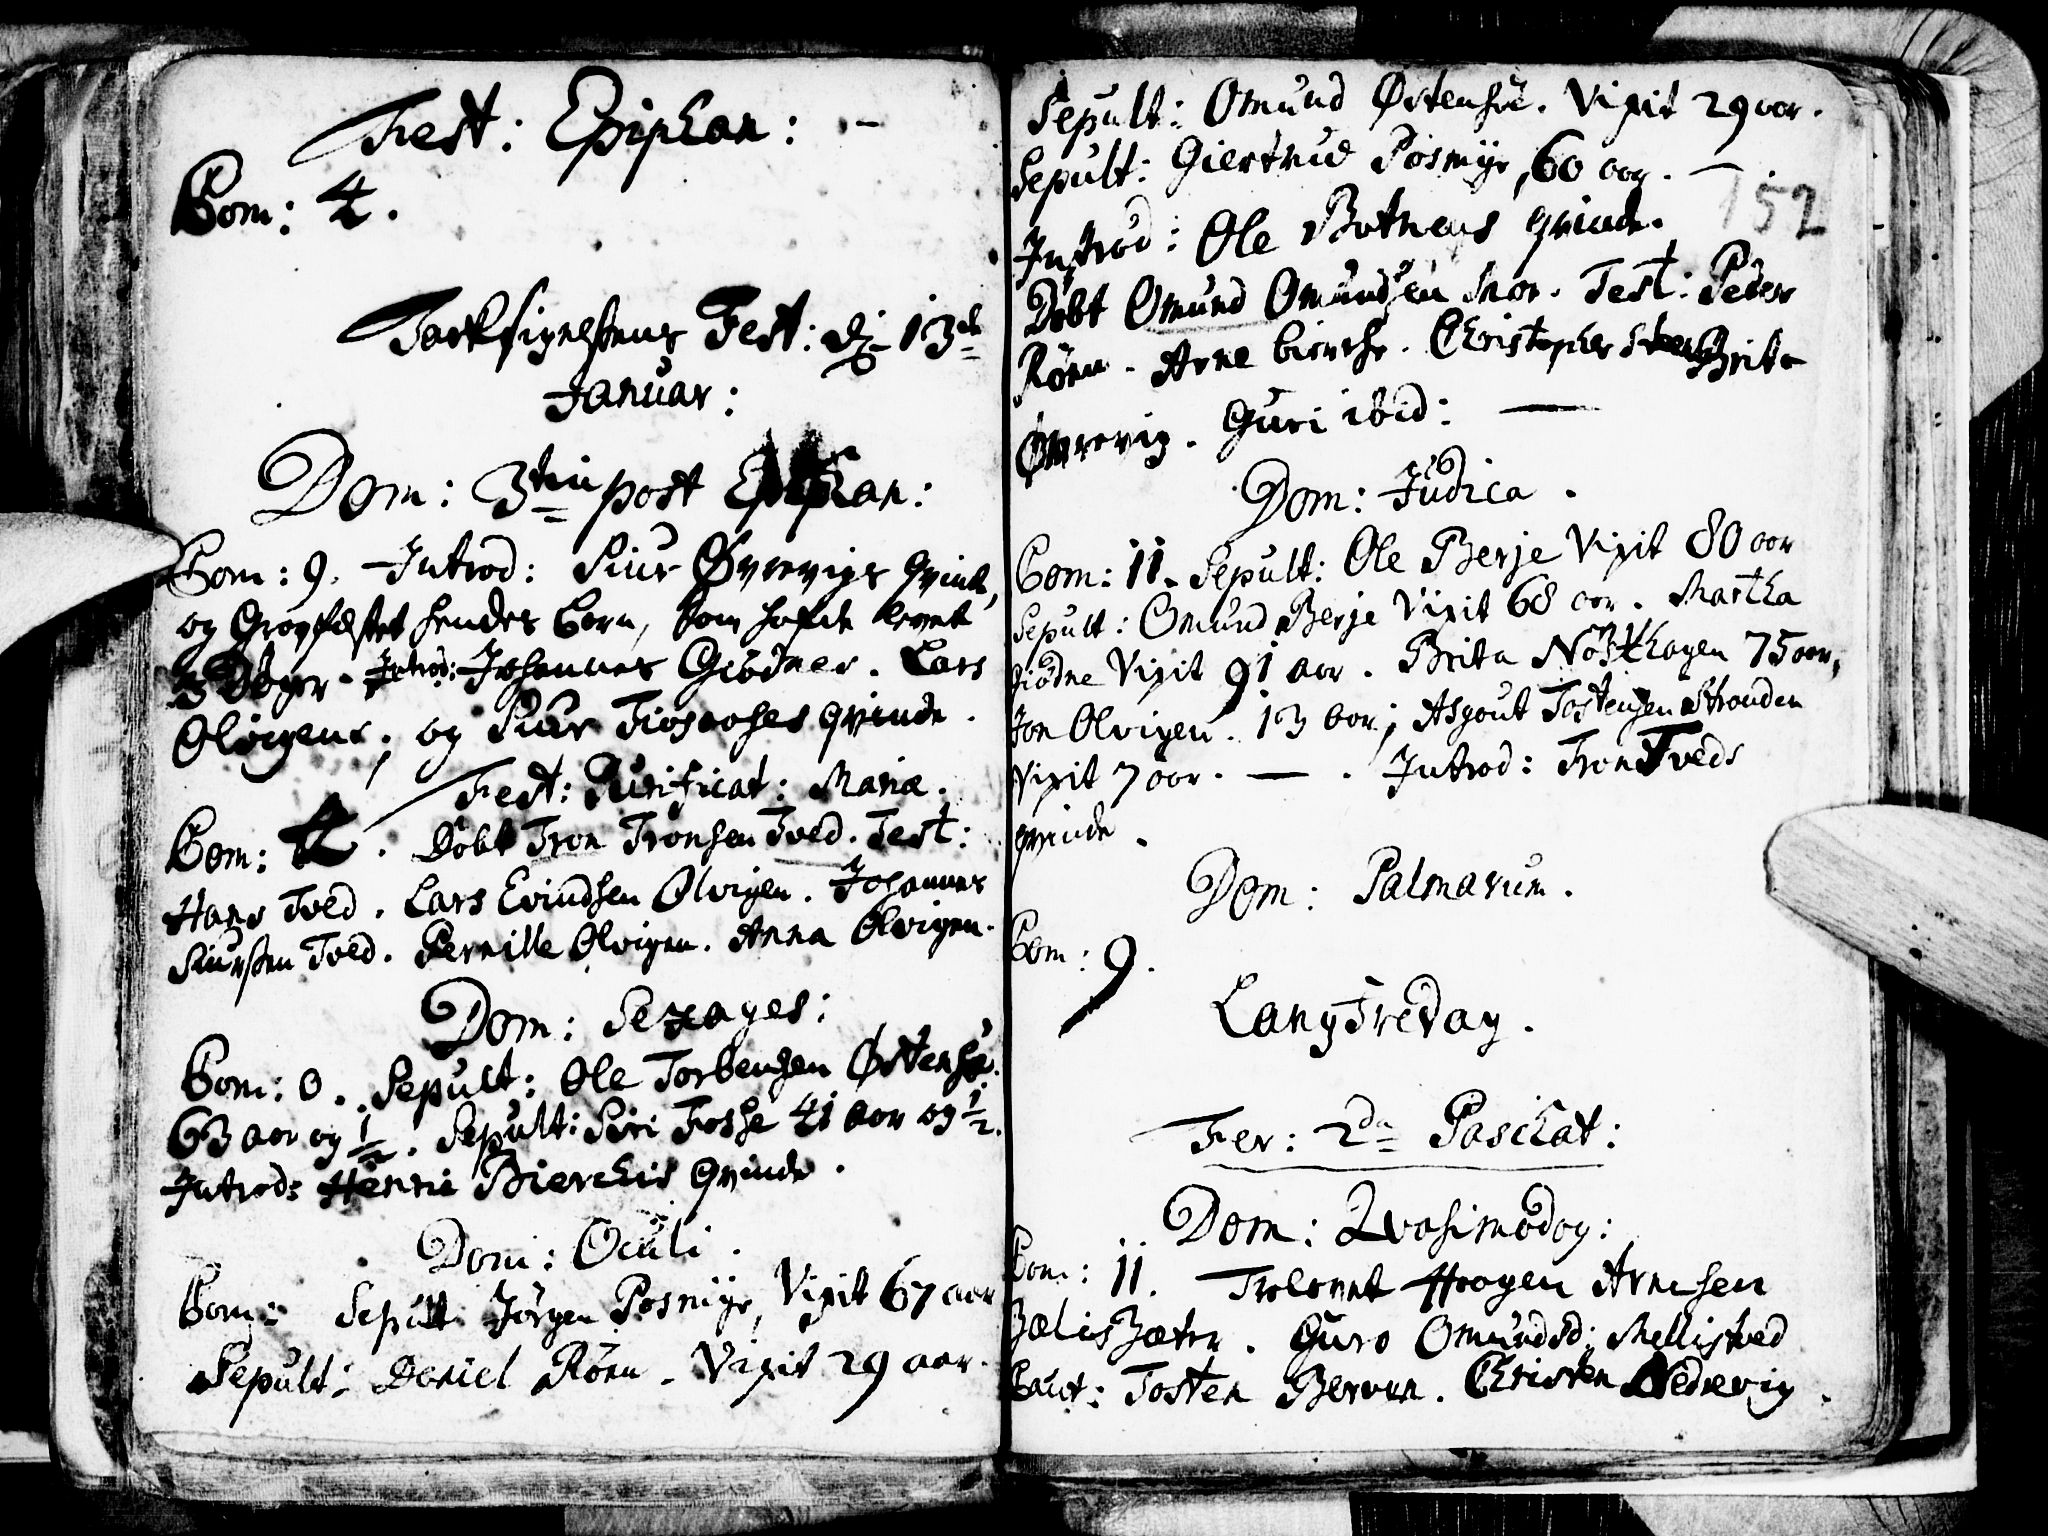 Fest: Epiphan: -
Com: 4.
Tacksigelsens Fest: d: 13de
Januar:
Dom: 3tia post Epiphan:
Com: 9. Introd: Siur Øvrevigs Qvinde,
og Gravfæstet hendes Born, som hafde levet
3 Døger. Introd: Johannes Giödnes. Lars
Olvigens, og Siur Fiosaases qvinde.
Fest: Purificat: Mariæ.
Com: 4. Døbt Tron Tronsen Tved. Test:
Hans Tved. Lars Evindsen Olvigen. Johannes
Siursen Tved. Pernille Olvigen. Anna Olvigen.
Dom: Sexages:
Com: 0. Sepult: Ole Torbensen Østensø.
63 aar og 1/2. Sepult: Siri Fosse 41 aar og 1/2.
Introd: Henrie Bierckis Qvinde.
Dom: Oculi.
Com: Sepult Jörgen Posmijr, Vixit 67 aar
Sepult: Daniel Röen. Vixit 29 aar.
Sepult: Omund Østensøe. Vixit 29 aar.
Sepult: Giertrud Posmijr, 60 aar. -
152
Introd: Ole Botnens qvinde.
Døbt Omund Omundsen Moe. Test: Peder
Röen. Arne Bircke. Christopher Brita
Øvrevig. Guri ibid: -
Dom: Judica.
Com: 11. Sepult: Ole Berje Vixit 80 aar
Sepult: Omund Berje Vixit 68 aar. Martha
Giödne Vixit 91 aar. Brita Nosthagen 75 aar,
Jon Olvigen. 13 aar; Asgout Tostensen Stranden
Vixit 7 aar. - . Introd: Tron Tveds
qvinde.
Dom: Palmarum.
Com: 9.
LangFredag.
Fer: 2da Paschat:
Dom: Qvasimodog:
Com: 11. Trolovet Haagen Arnesen
Guro Omundsd: Mellistved
Caut: Tosten Berven. Christen Nedrevig.